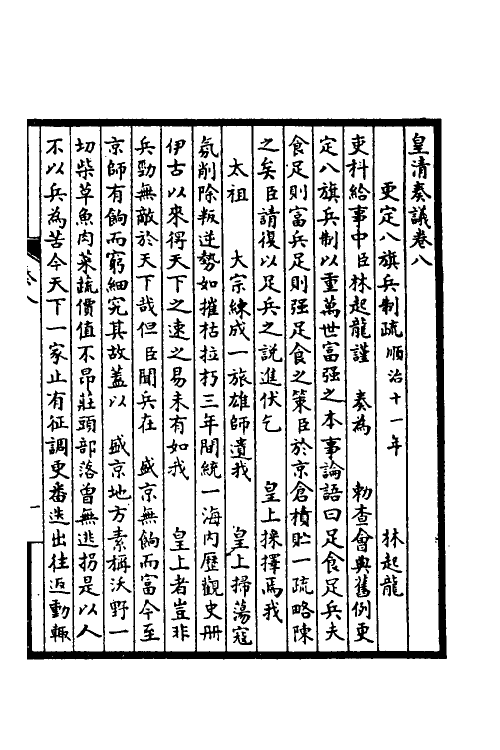 皇清奏議卷八
更定八旗兵制疏 順治十一年 林起龍
吏科給事中臣林起龍謹 奏為 勅查會典舊例更
定八旗兵制以重萬世富强之本事論語曰足食足兵夫
食足則富兵足則强足食之策臣於京倉積貯一疏略陳
之矣臣請復以足兵之說進伏乞 皇上採擇焉我
太祖 太宗練成一旅雄師遺我 皇上掃蕩寇
氛削除叛逆勢如摧枯拉朽三年間統一海内歷觀史册
伊古以來得天下之速之易未有如我 皇上者豈非
兵勁無敵於天下哉但臣聞兵在 盛京無餉而富今至
京師有餉而窮細究其故蓋以 盛京地方素稱沃野一
切柴草魚肉菜蔬價值不昂莊頭部落曾無逃拐是以人
不以兵為苦今天下一家止有征調更番迭出往返動輒
卷八
一